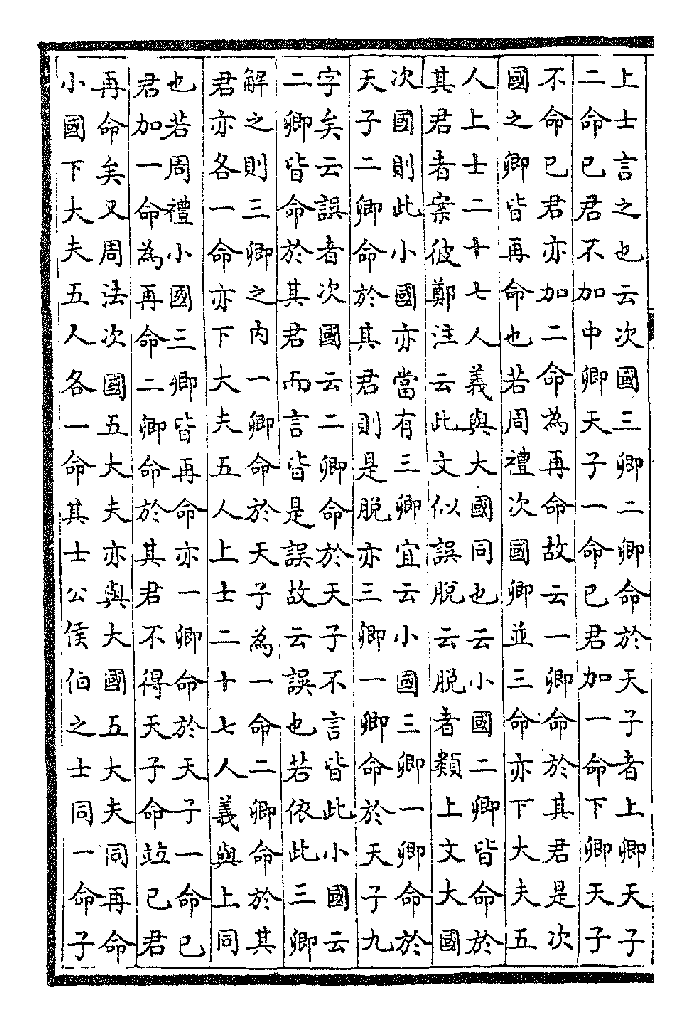 上士言之也云次國三卿二卿命於天子者上卿天子
二命已君不加中卿天子一命已君加一命下卿天子
不命已君亦加二命為再命故云一卿命於其君是次
國之卿皆再命也若周禮次國卿並三命亦下大夫五
人上士二十七人義與大國同也云小國二卿皆命於
其君者案彼鄭注云此文似誤脫云脫者類上文大國
次國則此小國亦當有三卿宜云小國三卿一卿命於
天子二卿命於其君則是脫亦三卿一卿命於天子九
字矣云誤者次國云二卿命於天子不言皆此小國云
二卿皆命於其君而言皆是誤故云誤也若依此三卿
解之則三卿之內一卿命於天子為一命二卿命於其
君亦各一命亦下大夫五人上士二十七人義與上同
也若周禮小國三卿皆再命亦一卿命於天子一命已
君加一命為再命二卿命於其君不得天子命竝已君
再命矣又周法次國五大夫亦與大國五大夫同再命
小國下大夫五人各一命其士公侯伯之士同一命子